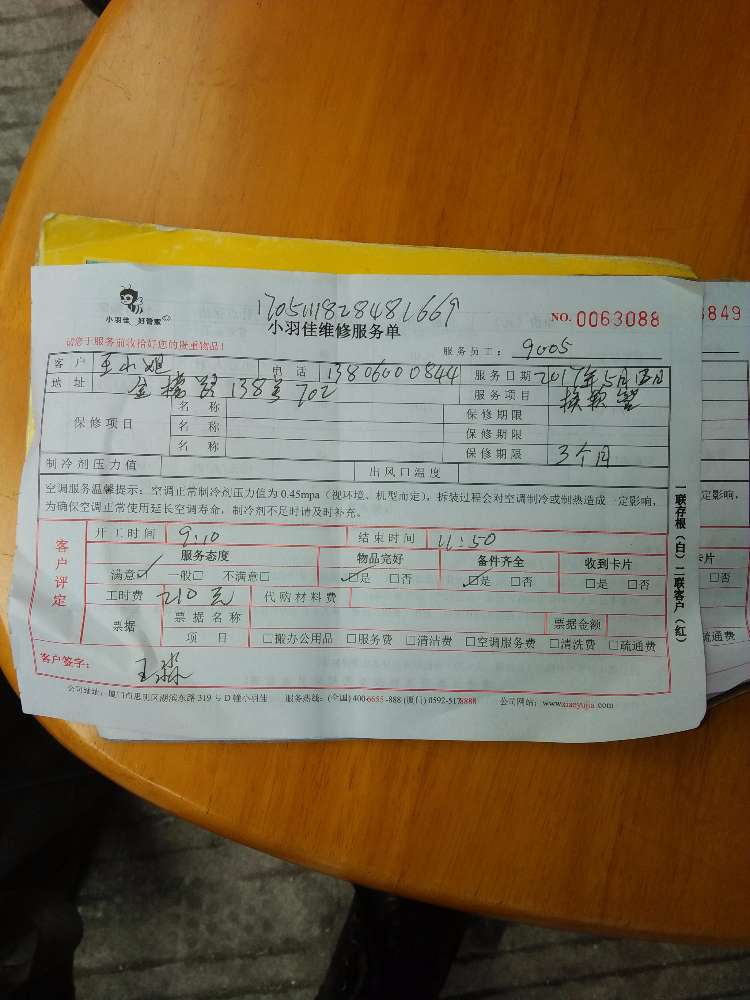 小羽佳 好管家
1705111828481669
小羽佳维修服务单
NO. 0063088
请您于服务前收拾好您的贵重物品!
服务员工: 9005
客户 王小姐 电话 13806000844 服务日期 2017年5月
地址 金榜路138号702 服务项目 换软管
保修项目 名称 保修期限
名称 保修期限
名称 保修期限 3个月
制冷剂压力值 出风口温度
空调服务温馨提示:空调正常制冷剂压力值为0.45mpa(视环境、机型而定),拆装过程会对空调制冷或制热造成一定影响,
为确保空调正常使用延长空调寿命,制冷剂不足时请及时补充。
客户评定
开工时间 9:10 结束时间 11:50
服务态度 物品完好 备件齐全 收到卡片
满意✓ 一般□ 不满意□ ☑是 □否 ☑是 □否 □是 □否
工时费 210元 代购材料费
票据 票据名称 票据金额
项目 □搬办公用品 □服务费 □清洁费 □空调服务费 □清洗费 □疏通费
客户签字: 王淼
公司地址:厦门市思明区湖滨东路319号D幢小羽佳 服务热线:(全国)400-6655-888 (厦门)0592-5178888 公司网站:www.xiaoyujia.com
一联存根(白)二联客户(红)
3849
定影响,
卡片
□否
疏通费